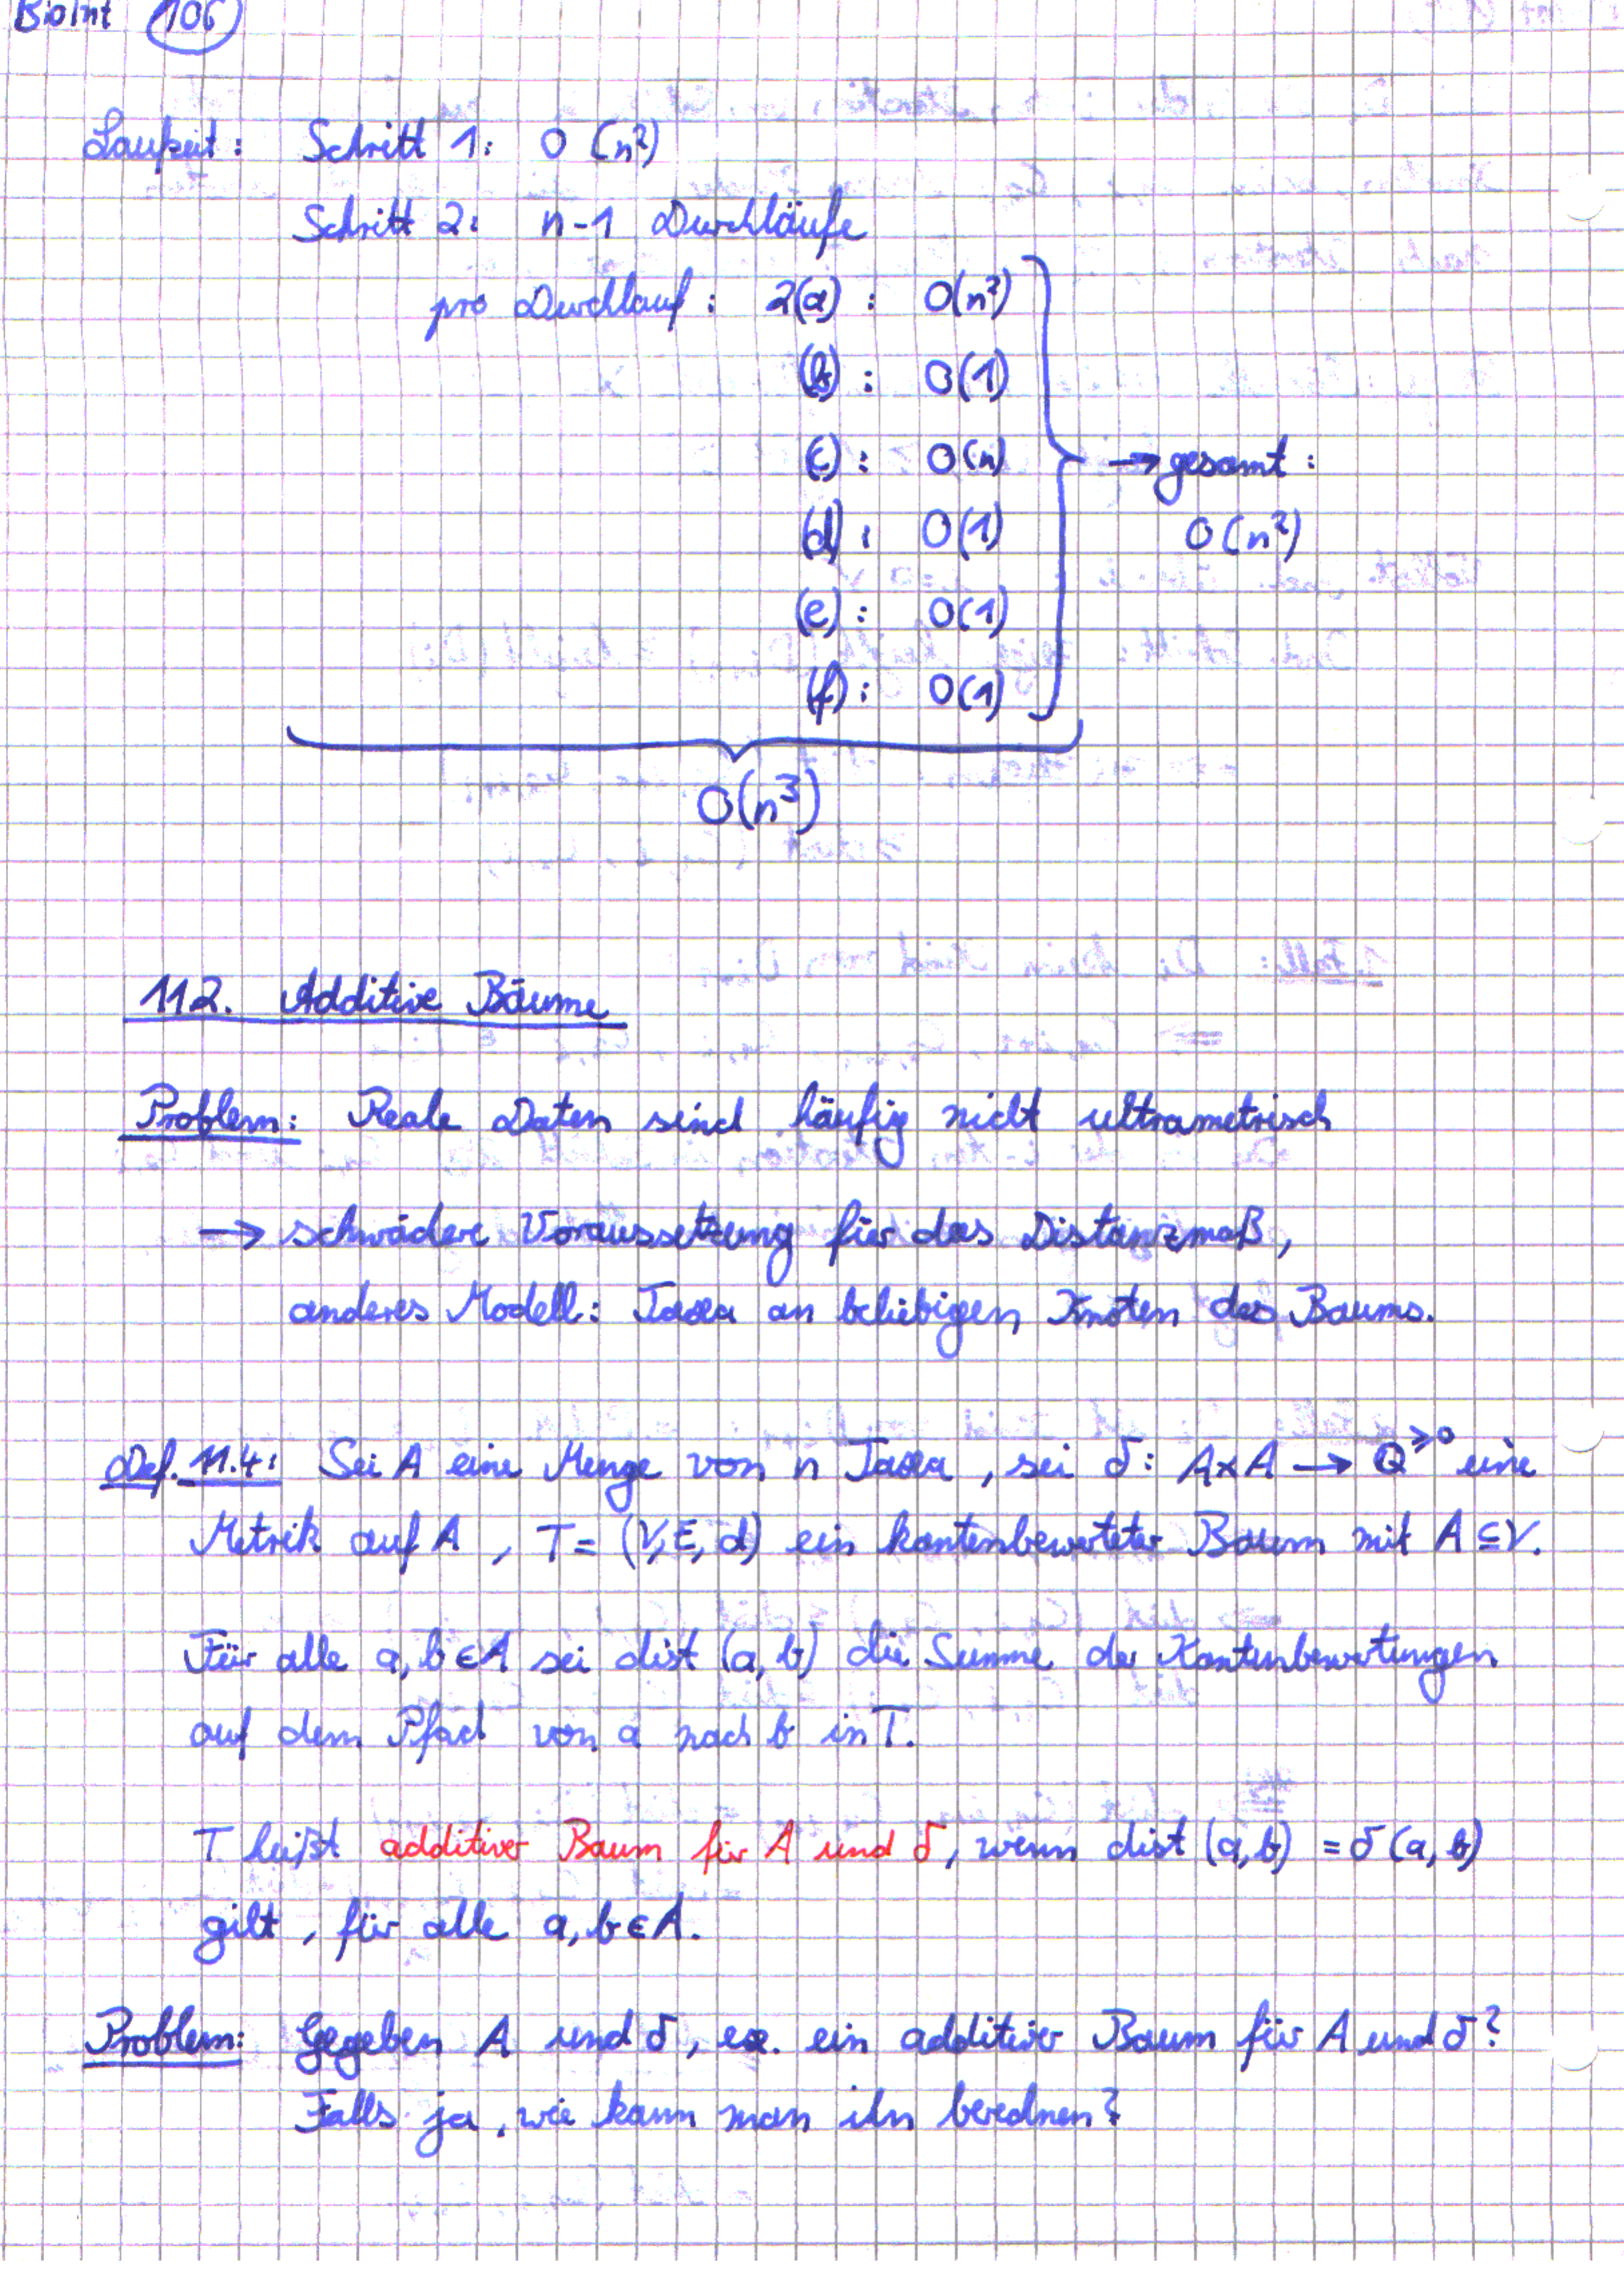 BioInt 106
Laufzeit: Schritt 1: O(n²)
Schritt 2: n-1 Durchläufe
pro Durchlauf: 2(a): O(n²)
(b): O(1)
(c): O(n) → gesamt:
(d): O(1) O(n²)
(e): O(1)
(f): O(1)
O(n³)
11.2. Additive Bäume
Problem: Reale Daten sind häufig nicht ultrametrisch
→ schwächere Voraussetzung für das Distanzmaß,
anderes Modell: Taxa an beliebigen Knoten des Baums.
Def. 11.4: Sei A eine Menge von n Taxa, sei δ: A×A → Q^≥0 eine
Metrik auf A, T = (V, E, d) ein kantenbewerteter Baum mit A ⊆ V.
Für alle a, b ∈ A sei dist (a, b) die Summe der Kantenbewertungen
auf dem Pfad von a nach b in T.
T heißt additiver Baum für A und δ, wenn dist (a, b) = δ(a, b)
gilt, für alle a, b ∈ A.
Problem: Gegeben A und δ, ex. ein additiver Baum für A und δ?
Falls ja, wie kann man ihn berechnen?